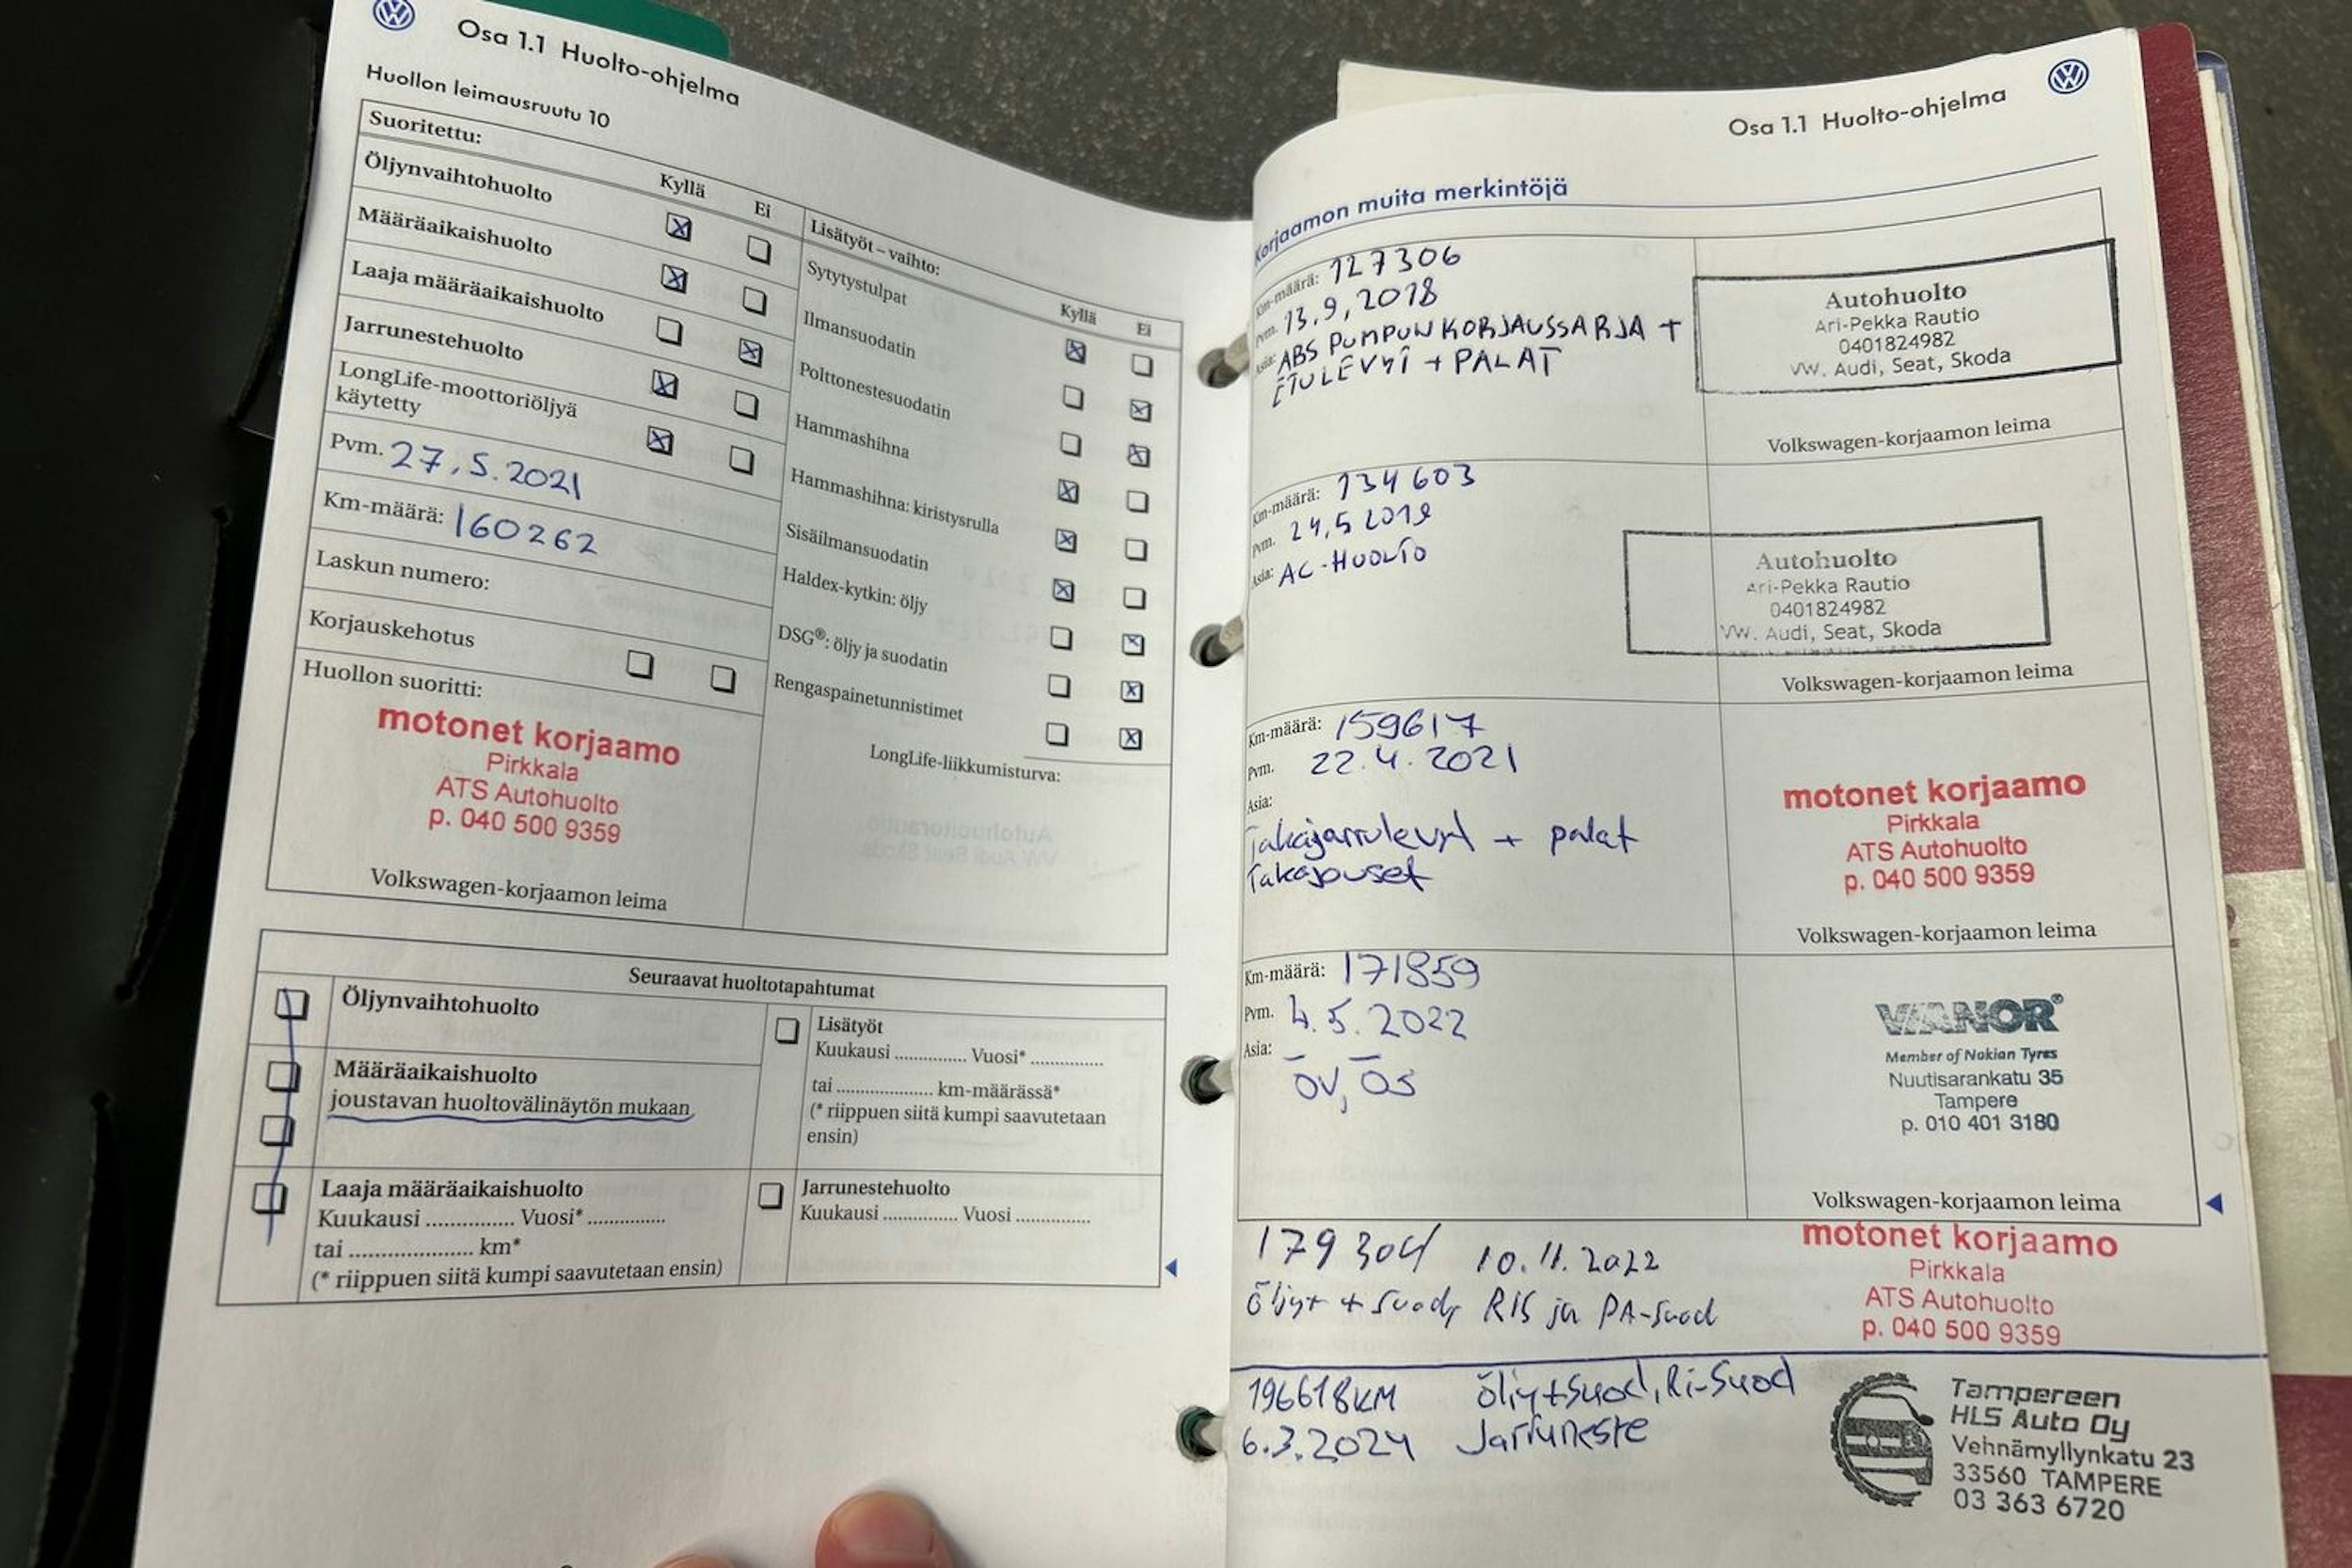 Osa 1.1 Huolto-ohjelma
Huollon leimausruutu 10
Suoritettu:
Kyllä Ei
Öljynvaihtohuolto
Määräaikaishuolto
Laaja määräaikaishuolto
Jarrunestehuolto
LongLife-moottoriöljyä
käytetty
Pvm. 27.5.2021
Km-määrä: 160262
Laskun numero:
Korjauskehotus
Huollon suoritti:
motonet korjaamo
Pirkkala
ATS Autohuolto
p. 040 500 9359
Volkswagen-korjaamon leima
Lisätyöt – vaihto:
Kyllä Ei
Sytytystulpat
Ilmansuodatin
Polttonestesuodatin
Hammashihna
Hammashihna: kiristysrulla
Sisäilmansuodatin
Haldex-kytkin: öljy
DSG®: öljy ja suodatin
Rengaspainetunnistimet
LongLife-liikkumisturva:
Seuraavat huoltotapahtumat
Öljynvaihtohuolto
Määräaikaishuolto
joustavan huoltovälinäytön mukaan
Laaja määräaikaishuolto
Kuukausi ............... Vuosi* ..............
tai ...................... km*
(* riippuen siitä kumpi saavutetaan ensin)
Lisätyöt
Kuukausi .............. Vuosi* ..............
tai .................. km-määrässä*
(* riippuen siitä kumpi saavutetaan
ensin)
Jarrunestehuolto
Kuukausi .............. Vuosi ..............
Osa 1.1 Huolto-ohjelma
Korjaamon muita merkintöjä
Km-määrä: 127306
Pvm. 13.9.2018
Asia: ABS PUMPUN KORJAUSSARJA +
ETULEVYT + PALAT
Autohuolto
Ari-Pekka Rautio
0401824982
VW. Audi, Seat, Skoda
Volkswagen-korjaamon leima
Km-määrä: 134603
Pvm. 24.5 2019
Asia: AC-HUOLTO
Autohuolto
Ari-Pekka Rautio
0401824982
VW. Audi, Seat, Skoda
Volkswagen-korjaamon leima
Km-määrä: 159617
Pvm. 22.4.2021
Asia:
Takajarrulevyt + palat
Takajouset
motonet korjaamo
Pirkkala
ATS Autohuolto
p. 040 500 9359
Volkswagen-korjaamon leima
Km-määrä: 171859
Pvm. 4.5.2022
Asia:
ÖV, ÖS
VIANOR®
Member of Nokian Tyres
Nuutisarankatu 35
Tampere
p. 010 401 3180
Volkswagen-korjaamon leima
179304 10.11.2022
Öljyt + suod, RIS ja PA-suod
motonet korjaamo
Pirkkala
ATS Autohuolto
p. 040 500 9359
196618KM öljy+suod, Ri-Suod
6.3.2024 Jarruneste
Tampereen
HLS Auto Oy
Vehnämyllynkatu 23
33560 TAMPERE
03 363 6720